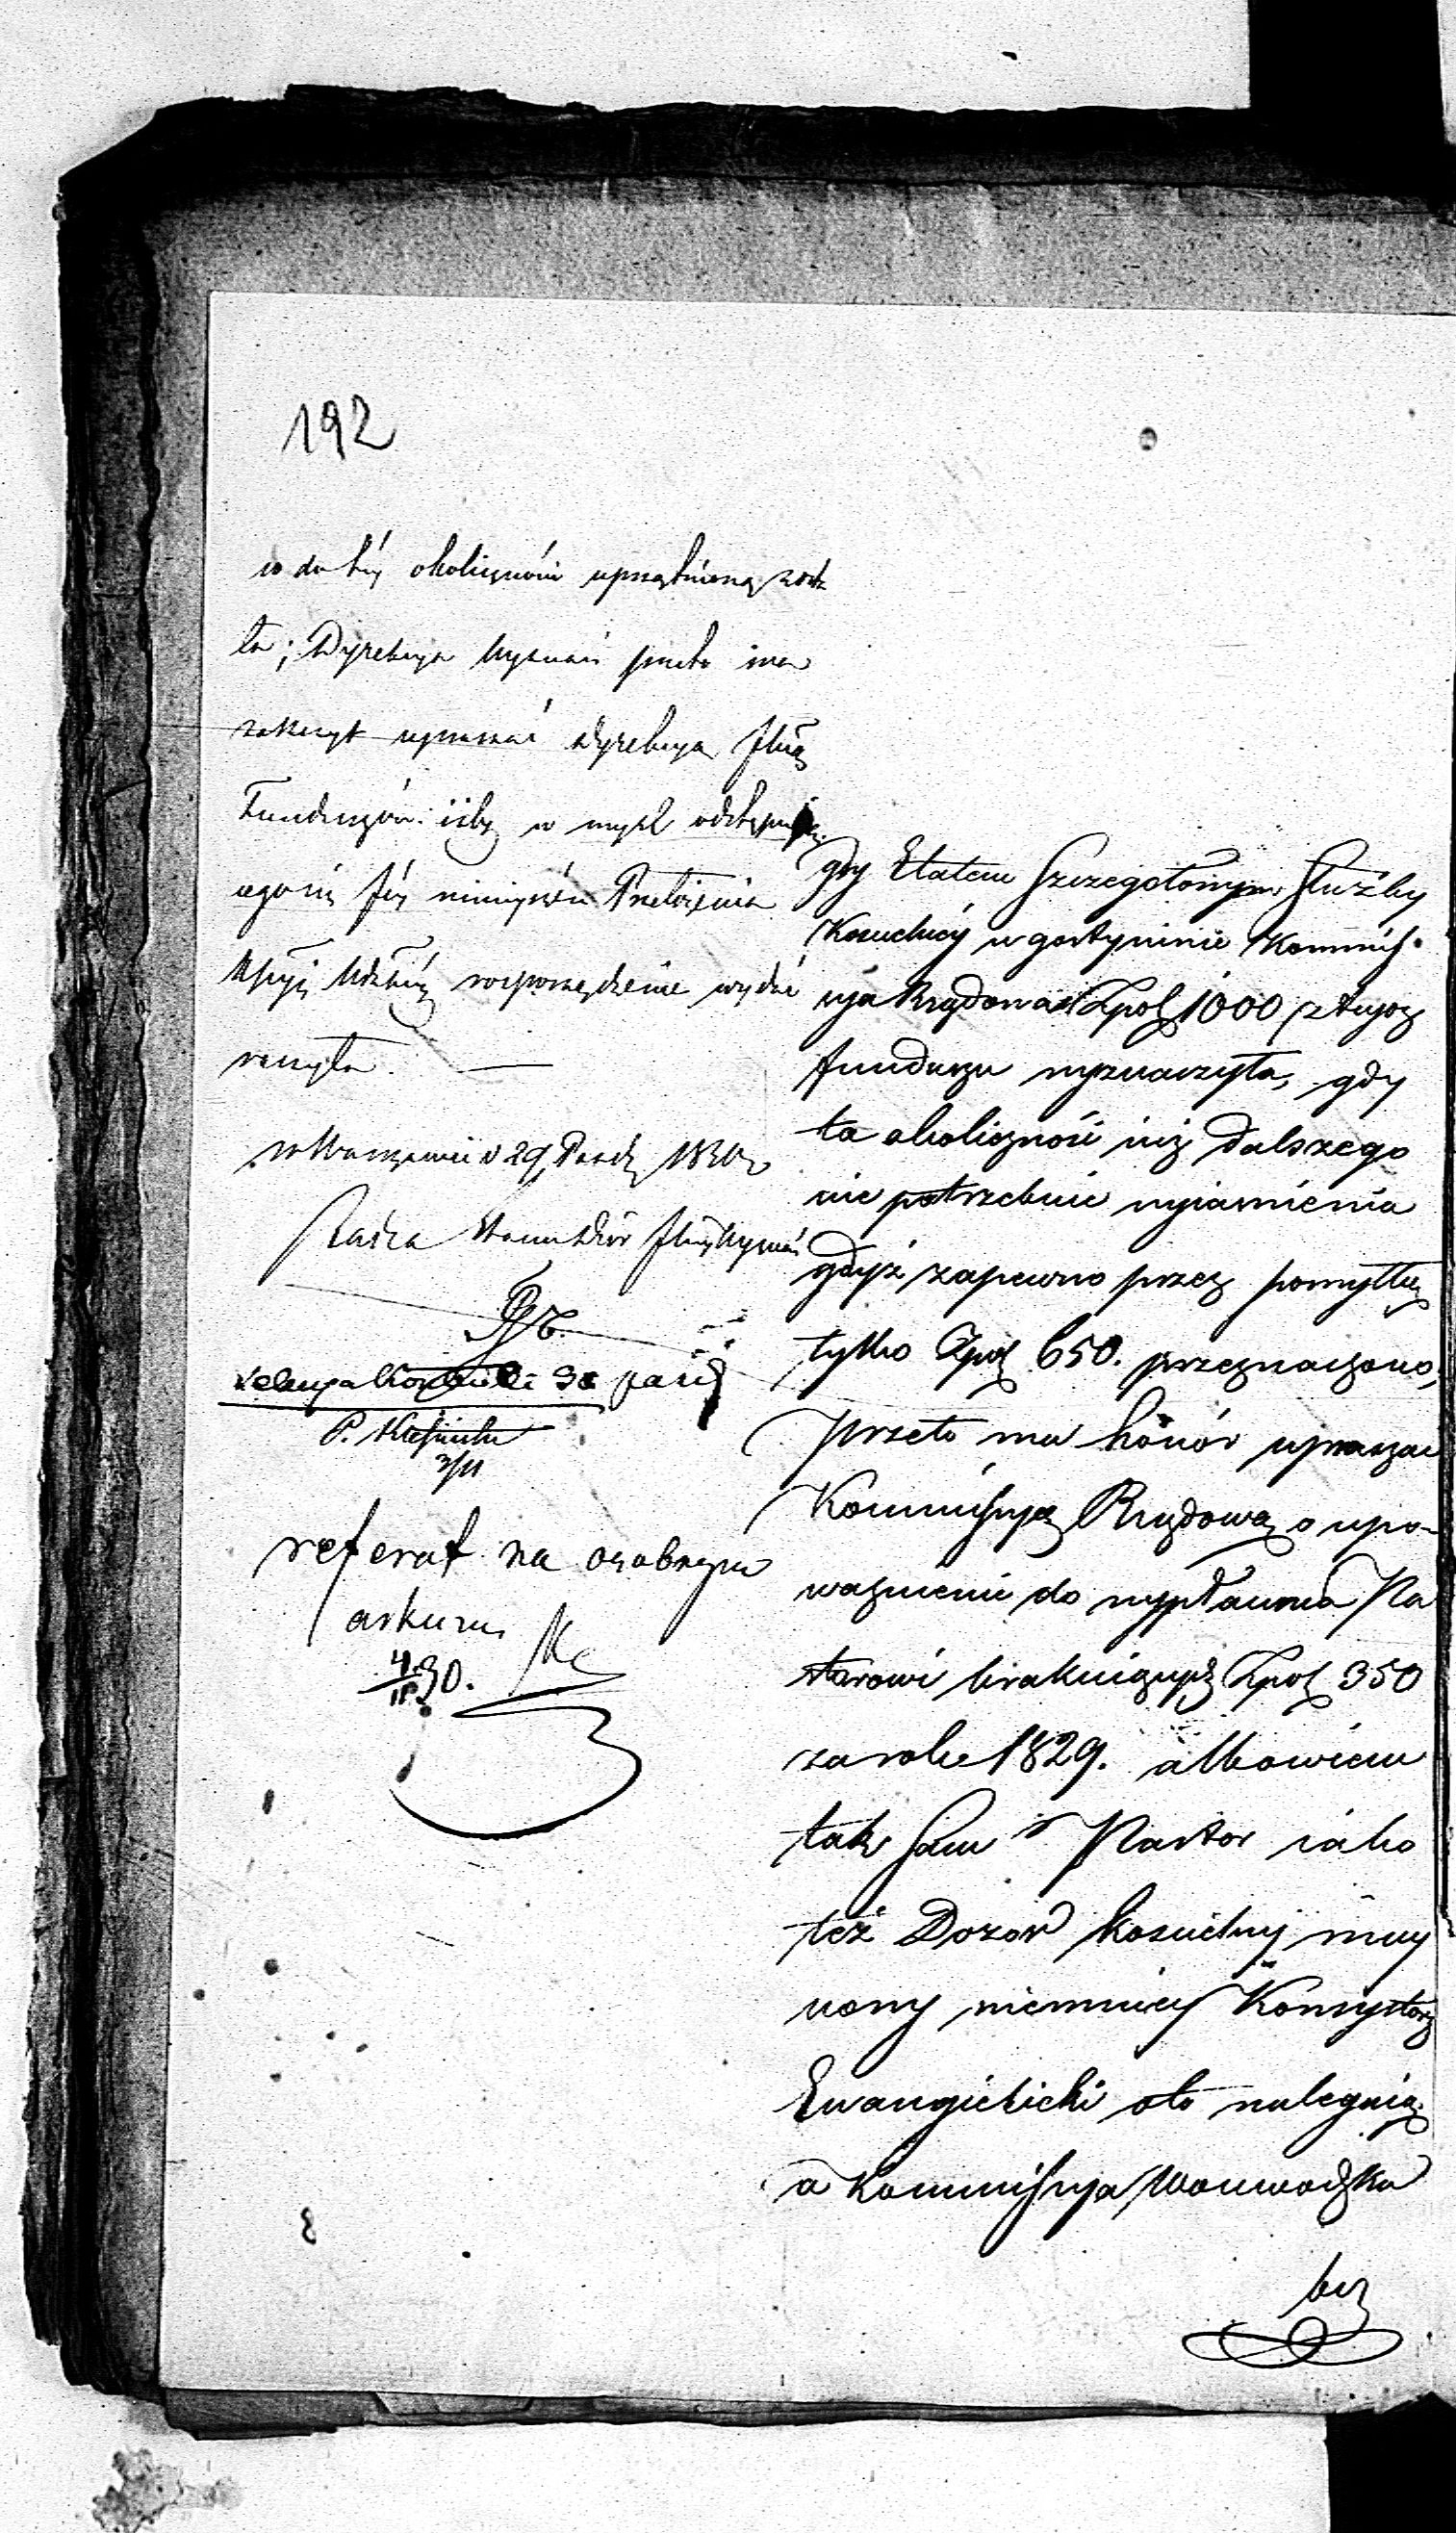 192
okoliczności uprzątnioną zosta
ła; Dyrekcya Wyznań przeto ma
zaszczyt upraszać Dyrekcyą Służ
Funduszów. iżby w myśl
niniejszém Przełożenia
rozporządzenie wydać
raczyła.
w Warszawie d 29 Paźdz 1830
Radca Stanu Wyznań
30 paźdz
referat na osobnym
arkuszu
4/11 30.
gdy Etatem Szczegołowym Służby
Koscielnéj w Gostyninie Kommis-
syja Rządowa Zpol 1000 z tego
funduszu wyznaczyła, gdy
ta okoliczność iuż dalszego
nie potrzebuie wyiasnienia
gdyż zapewno przez pomyłkę
tylko Zpol 650. przeznaczono,
przeto ma honór upraszać
Kommissyą Rządową o upo-
ważnienie do wypłacenia Pa
storowi brakuiących Zpol 350
za rok 1829. albowiem
tak sam Pastor iako
też Dozor kościelny
niemniey Konsystorz
Ewangielicki oto nalegaią.
a Kommissyja Woiewodzka
bez
8